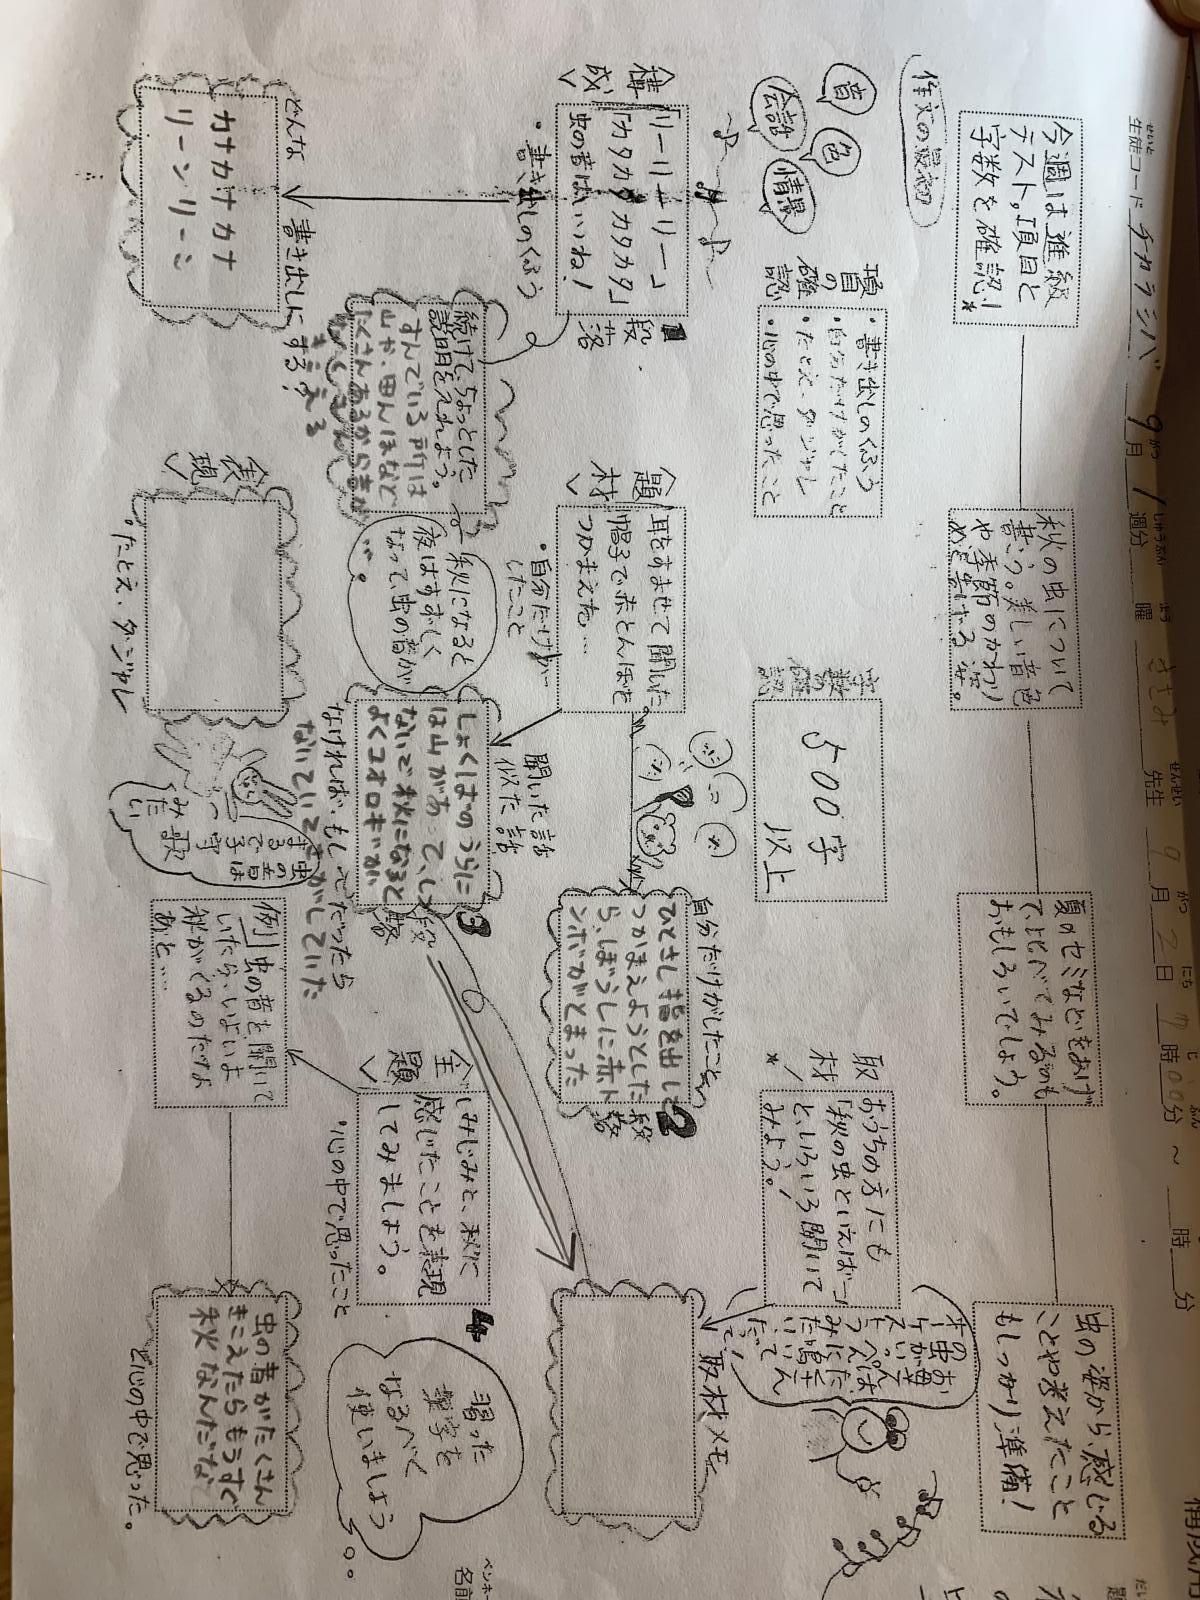 せいと
生徒コード チカラシバ 9月 1週分 曜 ささみ 先生 9月2日 17時00分～ 時 分
今週は進級
テスト。項目と
字数を確認！
秋の虫について
書こう。美しい音色
や季節のかわり
夏のセミなどをあげ
て、比べてみるのも
おもしろいでしょう。
虫の姿から感じる
ことや考えたこと
もしっかり準備！
作文の最初
音
色
会話
情景
項目の確認
・書き出しのくふう
・自分だけがしたこと
・たとえ・ダジャレ
・心の中で思ったこと
字数の確認
500字
以上
取材！
おうちの方にも
「秋の虫といえば…」
といろいろ聞いて
みよう。
取材メモ
構成
「リーリーリー」
「カタカタカタカタ」
虫の音はいいね！
・書き出しのくふう
1段落
続けて、ちょっとした
説明を入れよう。
すんでいる所は
山や、田んぼなど
たくさんあるから虫が
たくさん
きこえる
どんな書き出しにする？
カナカナカナ
リーンリーン
題材
耳をすませて聞いた
帽子で赤とんぼを
つかまえた…
・自分だけが
したこと
自分だけがしたこと
ひとさし指を出して
つかまえようとした
ら、ぼうしに赤ト
ンボがとまった
2段落
秋になると
夜はすずしく
なって虫の音が
…。
聞いた話
似た話
しょくばのうらに
は山があって、
ないで秋になると
よくコオロギが
ないていて
さがしていた
なければ、もし〜だったら
3段落
表現
・たとえ・ダジャレ
虫の音は
まるで子守
歌
みたい
主題
しみじみと、秋に
感じたことを表現
してみましょう。
・心の中で思ったこと
4
例 虫の音を聞いて
いたら、いよいよ
秋がくるのだなよ
あと……
虫の音がたくさん
きこえたらもうすぐ
秋なんだな
と心の中で思った。
習った
漢字を
なるべく
使いましょう
ペンネーム
名前